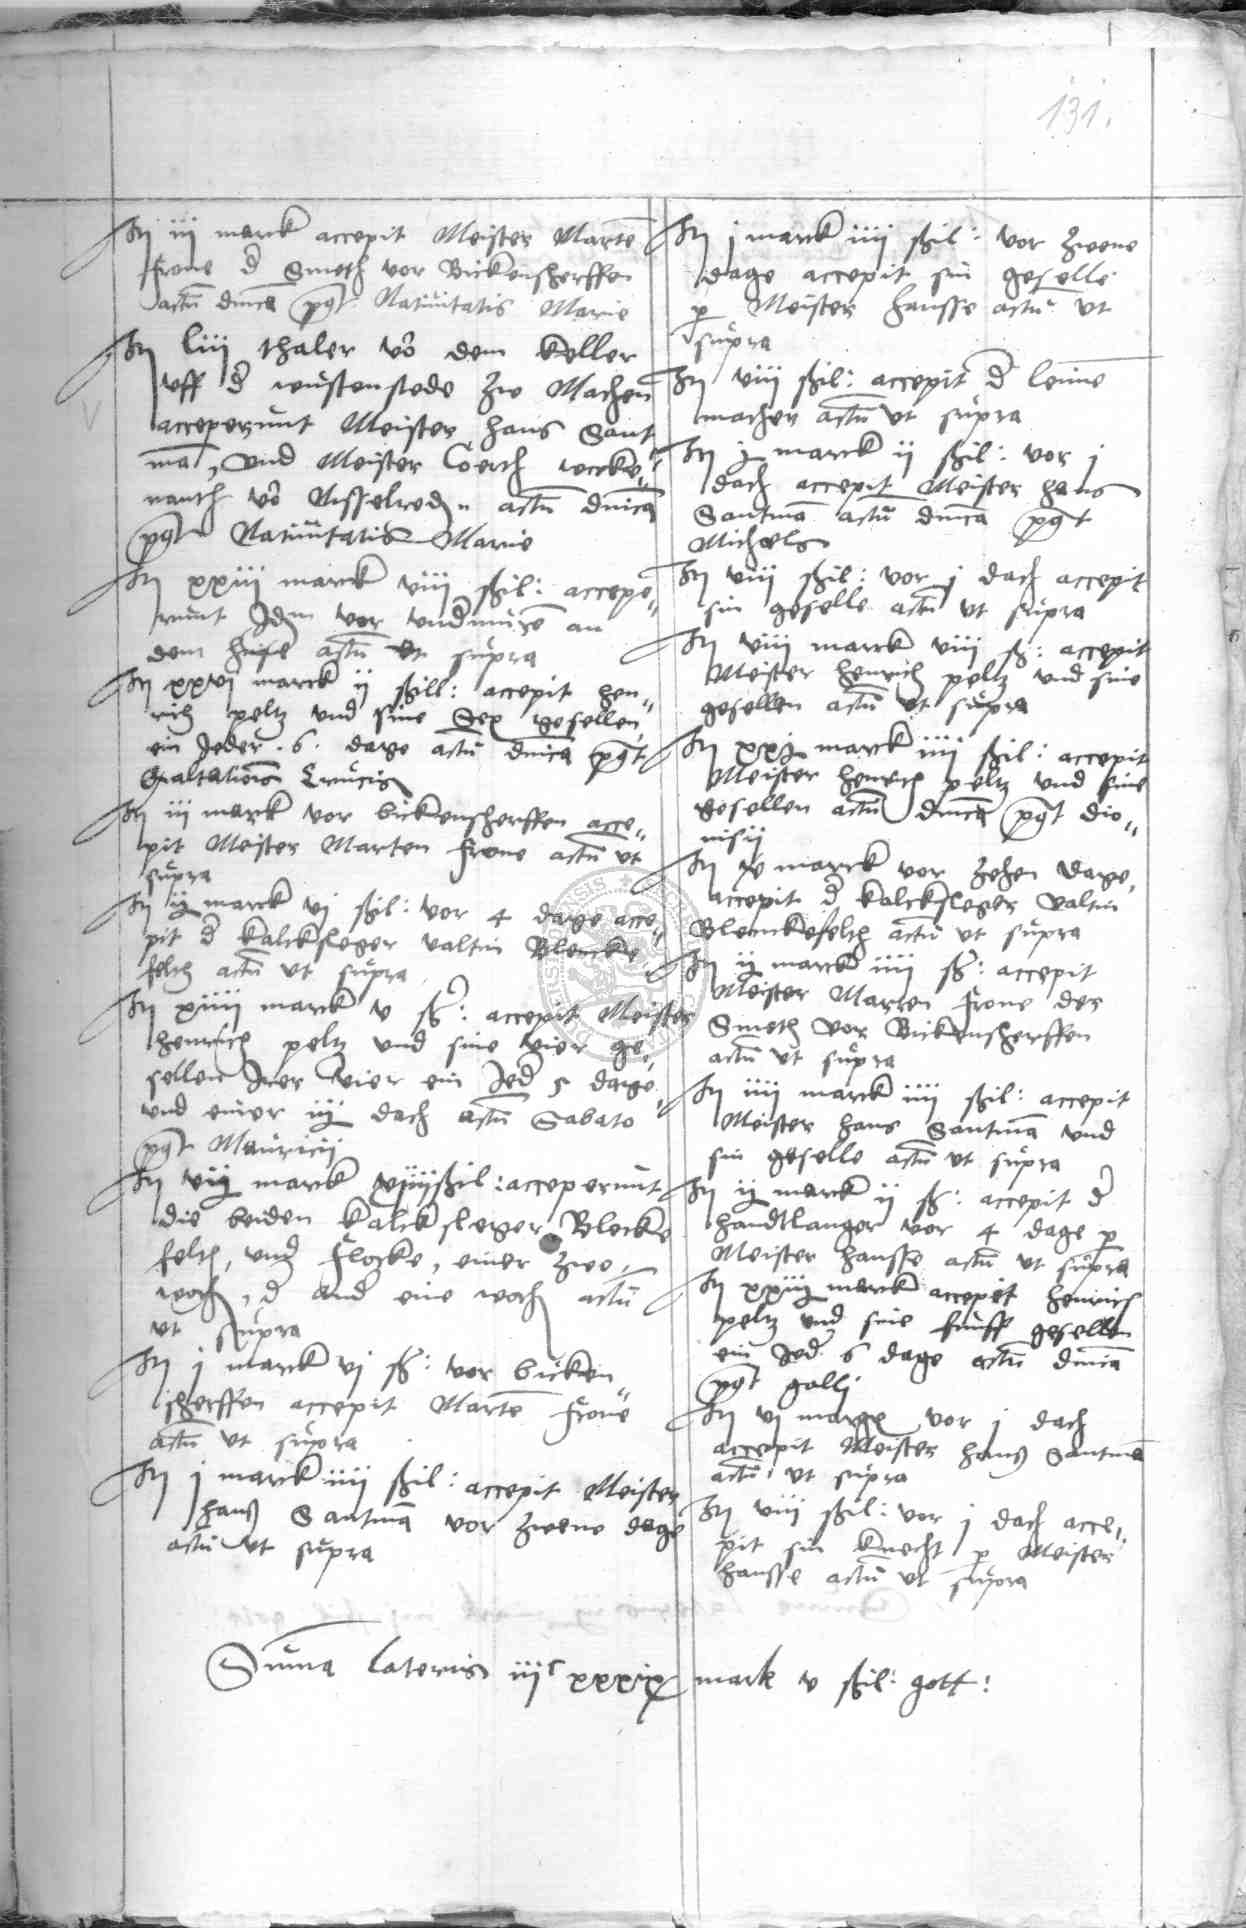 131.
Itē iij marck accepit Meister Martē
Frone d Smeth vor Bickenscherffen
actū dnica post Natiuitatis Marie
Itē liij thaler vō dem Keller
vff d wustenstede zw Machen
acceperunt Meister hans Sant
mā, vnd Meister Coerth
nanth vō actū dnica
post Natiuitatis Marie
Itē xxiij marck viij ßil: accepe„
runt Idem vor vndmurē an
dem huse actū vt supra
Itē xxvj marck ij ßill: accepit hen„
rich peltz vnd sine Sex gesellen
ein Jeder .6. dage actū dnica post
Exaltationis Crucis
Itē iij mark vor bickenscherffen acce„
pit Meister Marten Frone actū vt
supra
Itē ij marck vj ßil: vor 4 dage acce„
pit d kalcksleger valtin Blencke
felth actū vt supra
Itē xiiij marck v ß: accepit Meister
henrich peltz vnd sine vier ge„
sellen Irer vier ein Jed 5 dage
vnd einer iij dach actū Sabato
post Mauricij
Itē marck ßil: acceperunt
die beiden kalcksleger Blecke
felth, vnd Flocke, einer zwo,
woch, d and eine woch actū
vt supra
Itē j marck vj ß: vor bicken„
scherffen accepit Martē Frone
actū vt supra
Itē j marck iiij ßil: accepit Meister
hanß Santmā vor zweene dage
actū vt supra
Itē j marck iiij ßil: vor zweene
dage accepit sin geselle
p Meister hansse actū vt
supra
Itē viij ßil: accepit d leime
macher actū vt supra
Itē j marck ij ßil: vor j
dach accepit Meister hans
Santmā actū dnica post
Michaelis
Itē viij ßil: vor j dach accepit
sin geselle actū vt supra
Itē viij marck viij ß: accepit
Meister henrich peltz vnd sine
gesellen actū vt supra
Itē xxj marck iiij ßil: accepit
Meister henrich peltz vnd sine
gesellen actū dnica post dio„
nisij
Itē marck vor zehen dage,
accepit d kalcksleger valtin
Blenckefelth actū vt supra
Itē ij marck iiij ß: accepit
Meister Marten Frone der
Smeth vor Bickenscherffen
actū vt supra
Itē iiij marck iiij ßil: accepit
Meister hans Santmā vnd
sin geselle actū vt supra
Itē ij marck ij ß: accepit d
handtlanger vor 4 dage p
Meister hansse actū vt supra
Itē xxiij marck accepit henrich
peltz vnd sine funff gesellen
ein Jed 6 dage actū dnica
post galli
Itē vj vor j dach
accepit Meister hanß Santmā
actū vt supra
Itē viij ßil: vor j dach acce„
pit sin knecht p Meister
hansse actū vt supra
Suma lateris iijc xxxix mark v ßil: gott: